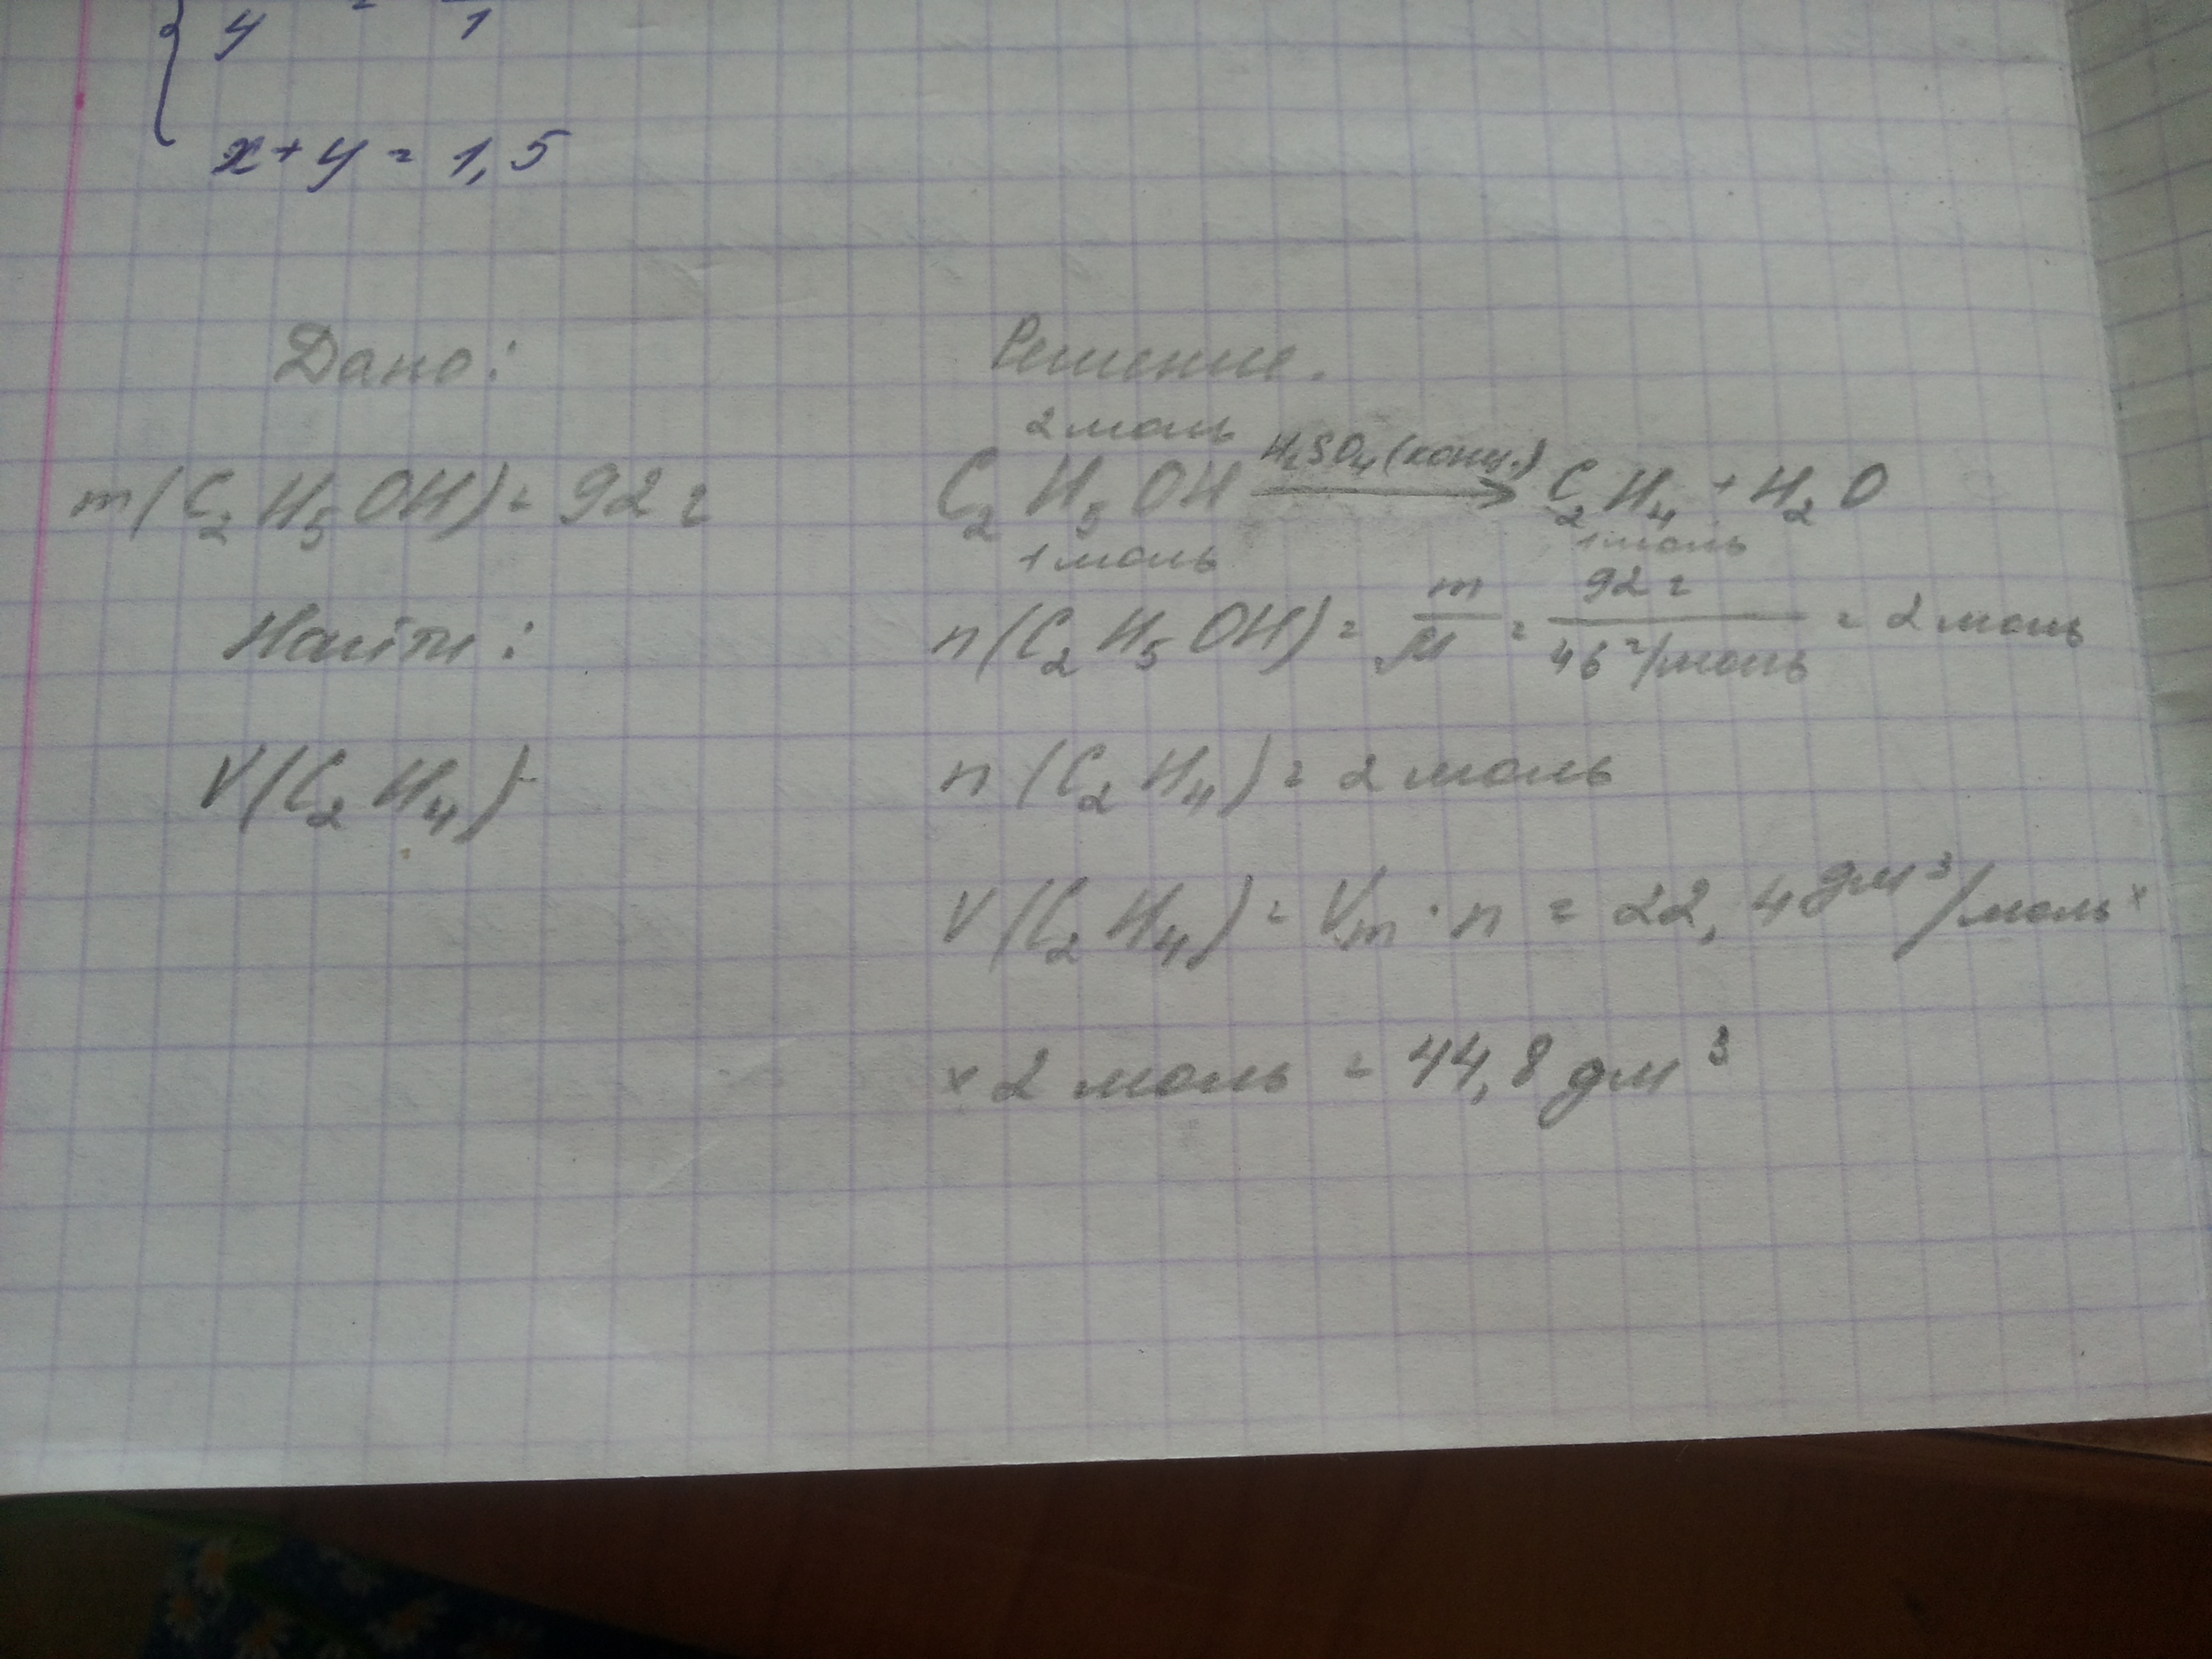 y = 1
x + y = 1,5
Дано:
m(C₂H₅OH) = 92 г
Найти:
V(C₂H₄)-
Решение.
2 моль
C₂H₅OH H₂SO₄(конц.)→ C₂H₄ + H₂O
1 моль 1 моль
n(C₂H₅OH) = m/M = 92 г/46 г/моль = 2 моль
n(C₂H₄) = 2 моль
V(C₂H₄) = Vm · n = 22,4 дм³/моль ×
× 2 моль = 44,8 дм³